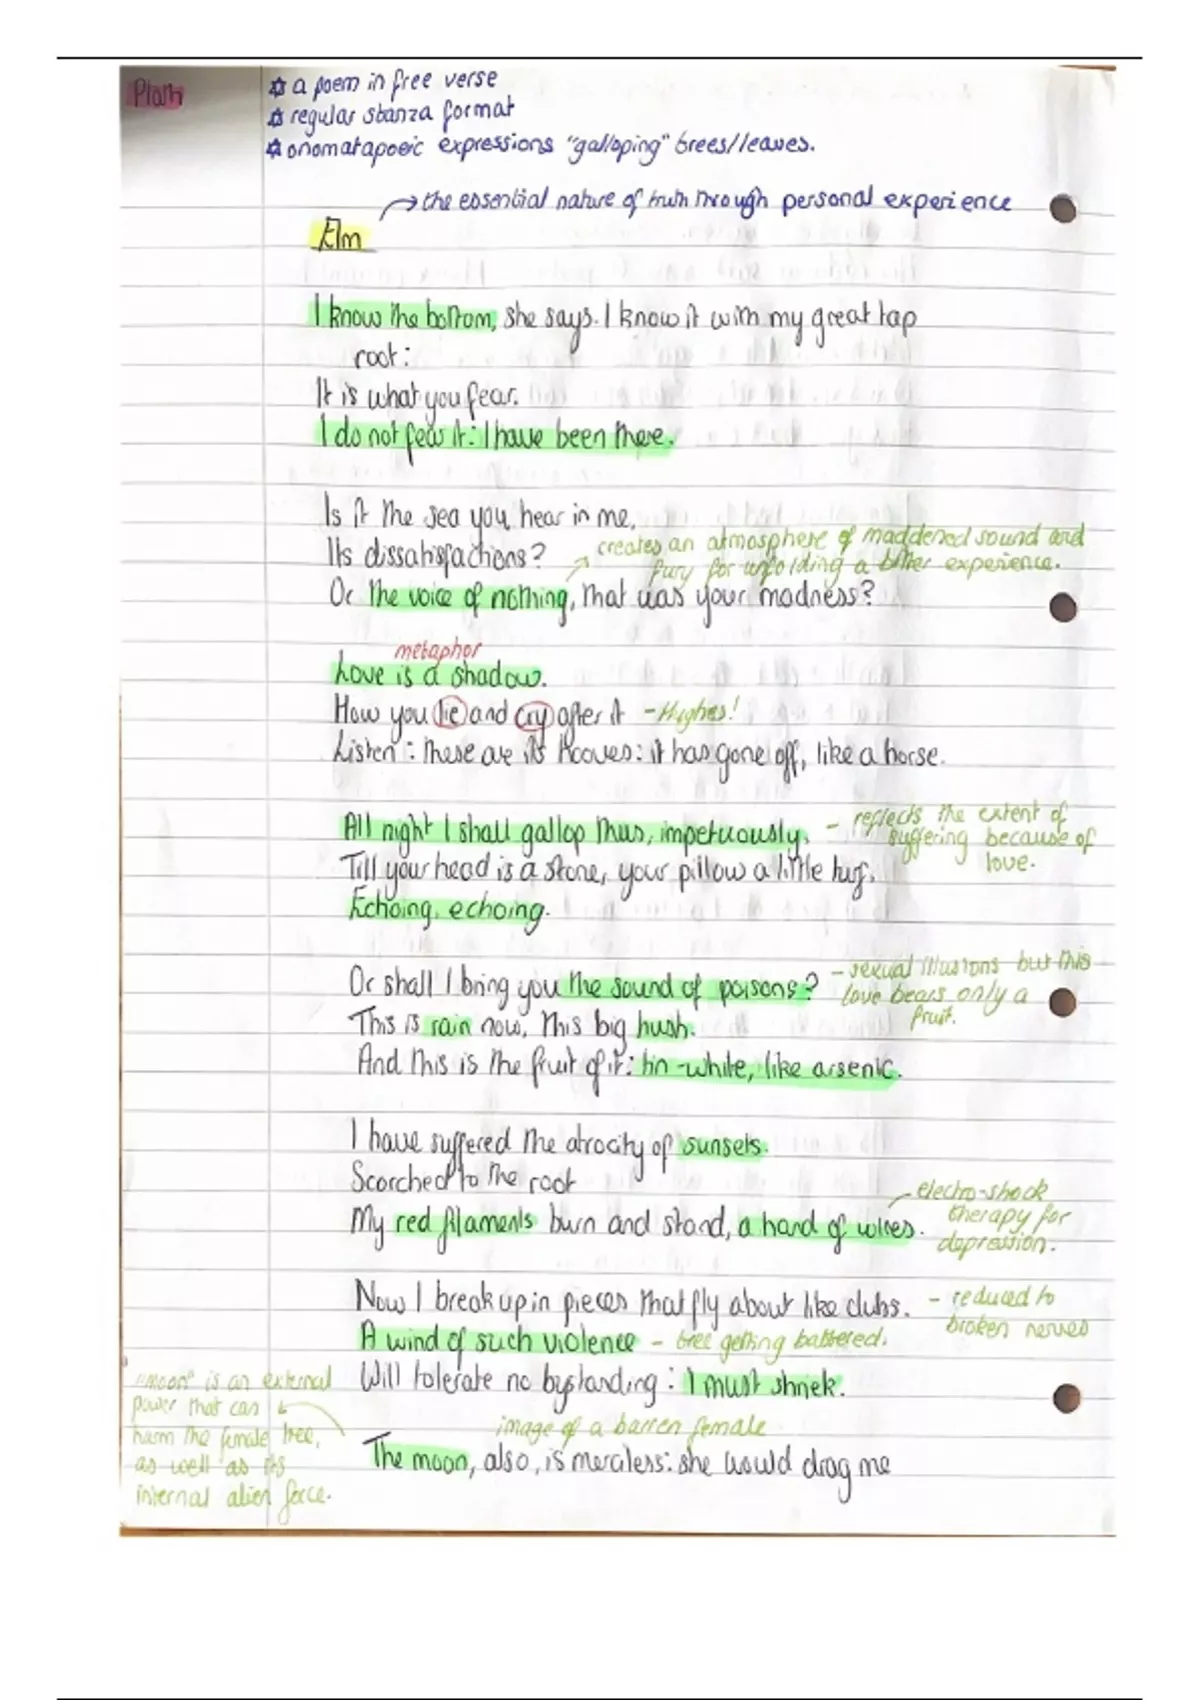 Plath
☆ a poem in free verse
☆ regular stanza format
☆ onomatapoeic expressions "galloping" trees/leaves.
→ the essential nature of truth through personal experience
Elm
I know the bottom, she says. I know it with my great tap
root:
It is what you fear.
I do not fear it: I have been there.
Is it the sea you hear in me,
Its dissatisfactions?
creates an atmosphere of maddened sound and
fury for unfolding a bitter experience.
Or the voice of nothing, that was your madness?
metaphor
Love is a shadow.
How you lie and cry after it - Hughes!
Listen: these are its hooves: it has gone off, like a horse.
All night I shall gallop thus, impetuously, - reflects the extent of
suffering because of
love.
Till your head is a stone, your pillow a little turf,
Echoing, echoing.
Or shall I bring you the sound of poisons? - sexual illusions but this
love bears only a
fruit.
This is rain now, this big hush.
And this is the fruit of it: tin-white, like arsenic.
I have suffered the atrocity of sunsets.
Scorched to the root
My red filaments burn and stand, a hand of wires.
electro-shock
therapy for
depression.
Now I break up in pieces that fly about like clubs. - reduced to
broken nerves
A wind of such violence - tree getting battered.
Will tolerate no bystanding: I must shriek.
"moon" is an external
power that can
harm the female tree,
as well as its
internal alien force.
image of a barren female
The moon, also, is merciless: she would drag me